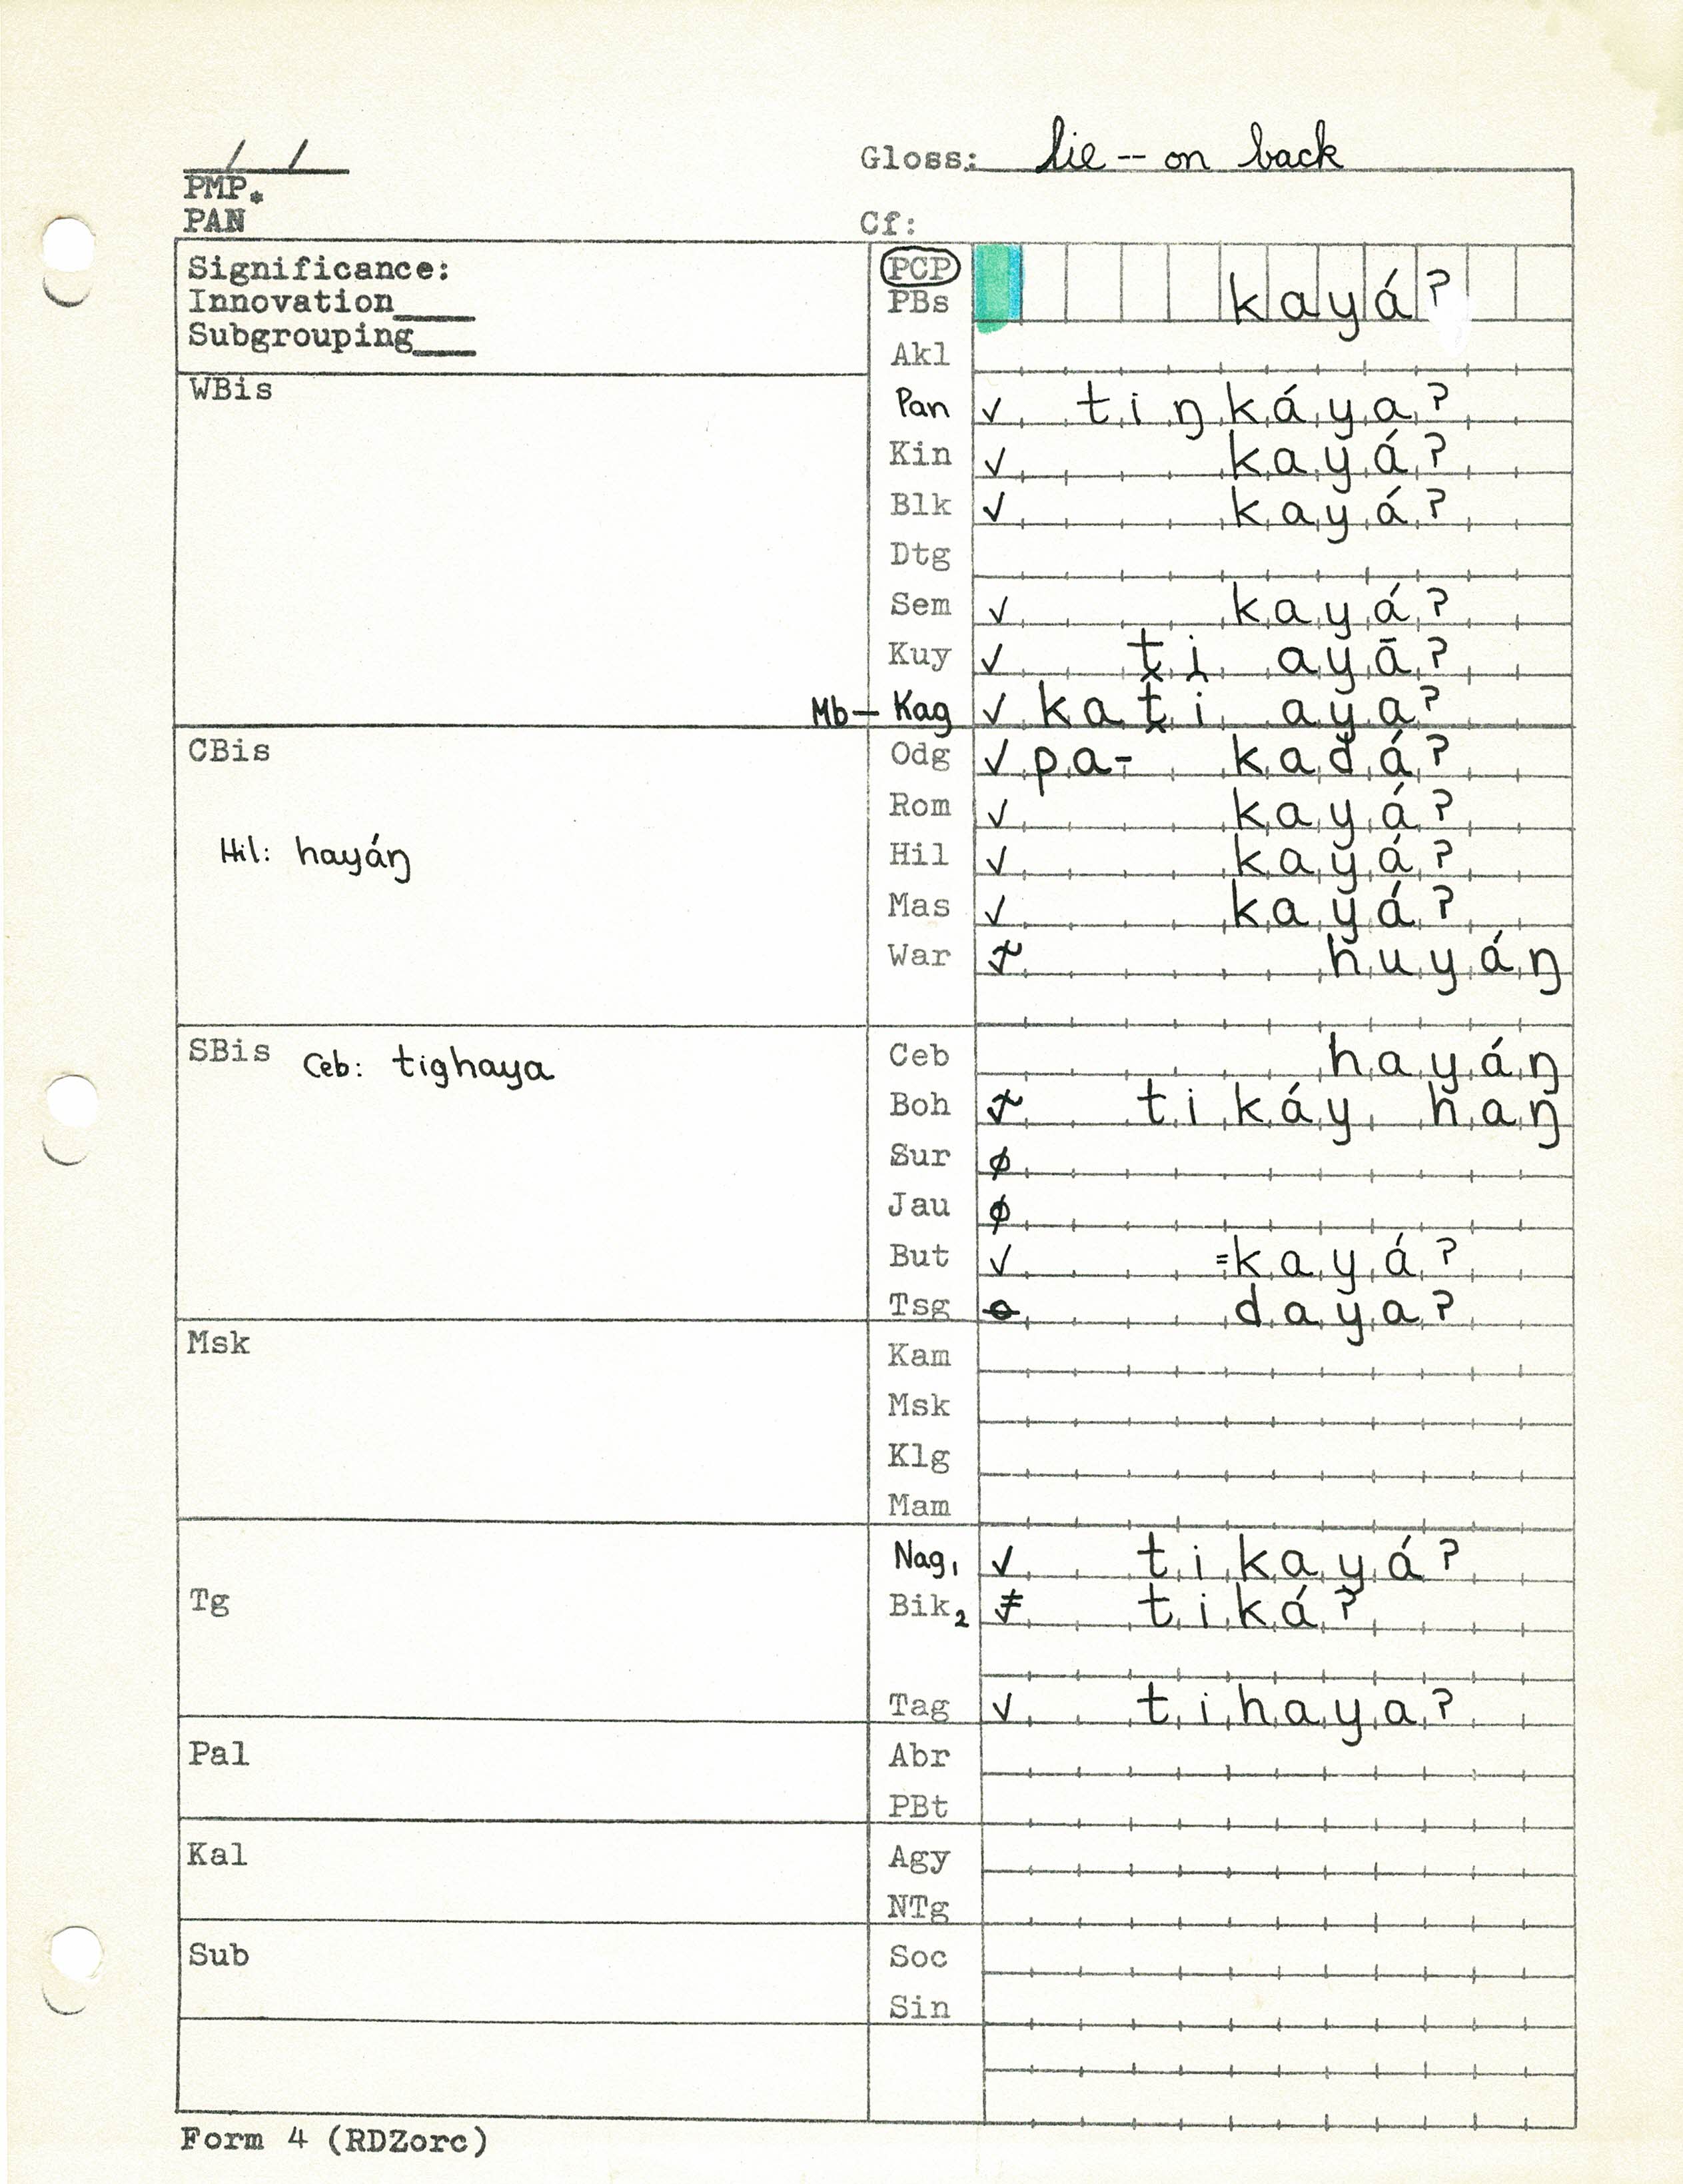 / /
Gloss: lie -- on back
PMP*
PAN
Cf:
Significance:
Innovation____
Subgrouping___
PCP
PBs kayáʔ
Akl
WBis
Pan ✓ tiŋkáyaʔ
Kin ✓ kayáʔ
Blk ✓ kayáʔ
Dtg
Sem ✓ kayáʔ
Kuy ✓ ti ayāʔ
Mb— Kag ✓ kati ayaʔ
CBis
Odg ✓ pa- kadáʔ
Rom ✓ kayáʔ
Hil: hayáŋ
Hil ✓ kayáʔ
Mas ✓ kayáʔ
War huyáŋ
SBis Ceb: tighaya
Ceb hayáŋ
Boh tikáy haŋ
Sur ∅
Jau ∅
But ✓ =kayáʔ
Tsg dayaʔ
Msk
Kam
Msk
Klg
Mam
Nag₁ ✓ tikayáʔ
Tg
Bik₂ ≠ tikáʔ
Tag ✓ tihayaʔ
Pal
Abr
PBt
Kal
Agy
NTg
Sub
Soc
Sin
Form 4 (RDZorc)